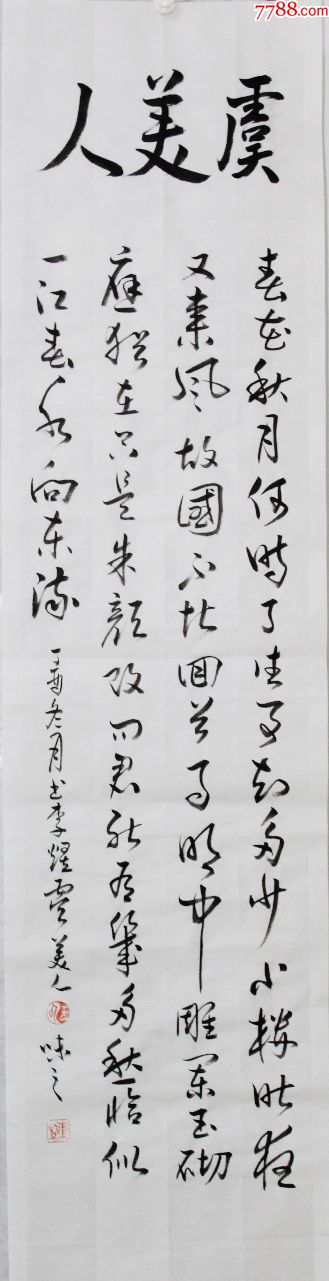 7788.com
虞美人
春花秋月何時了往事知多少小樓昨夜
又東風故國不堪回首月明中雕闌玉砌
應猶在只是朱顏改問君能有幾多愁恰似
一江春水向東流
冬月书李煜虞美人
味之